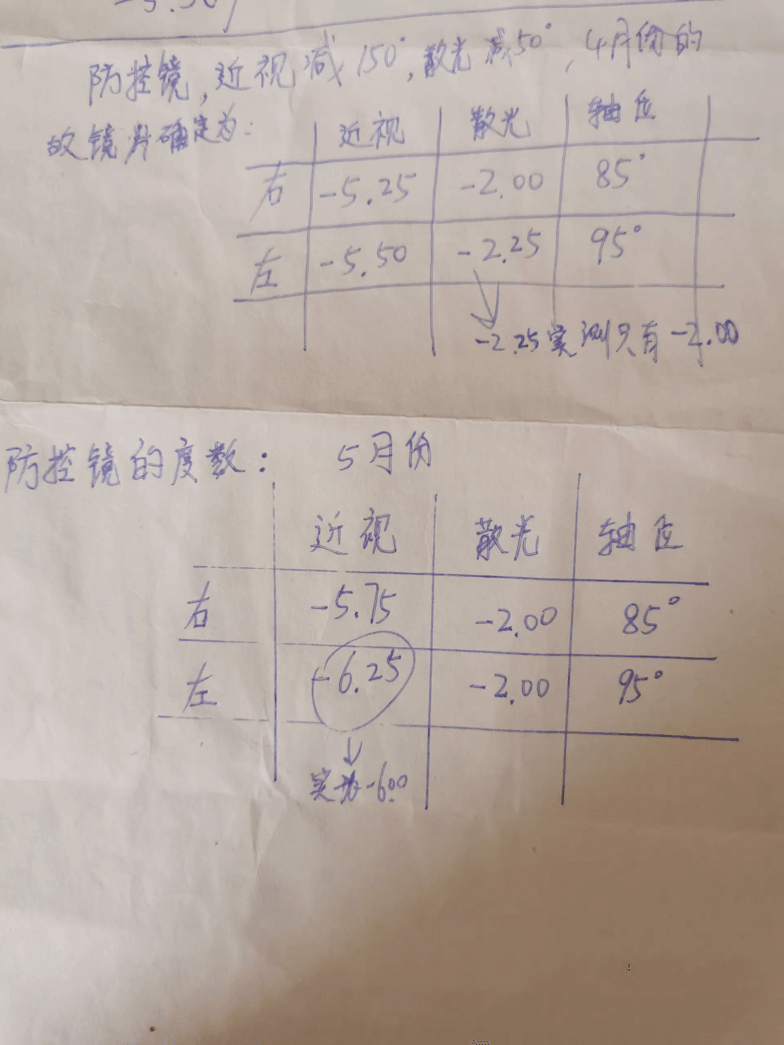 防控镜,近视减150°,散光减50°,4月份的
故镜片确定为:
近视 散光 轴位
右 -5.25 -2.00 85°
左 -5.50 -2.25 95°
-2.25实测只有-2.00
防控镜的度数: 5月份
近视 散光 轴位
右 -5.75 -2.00 85°
左 -6.25 -2.00 95°
-6.00